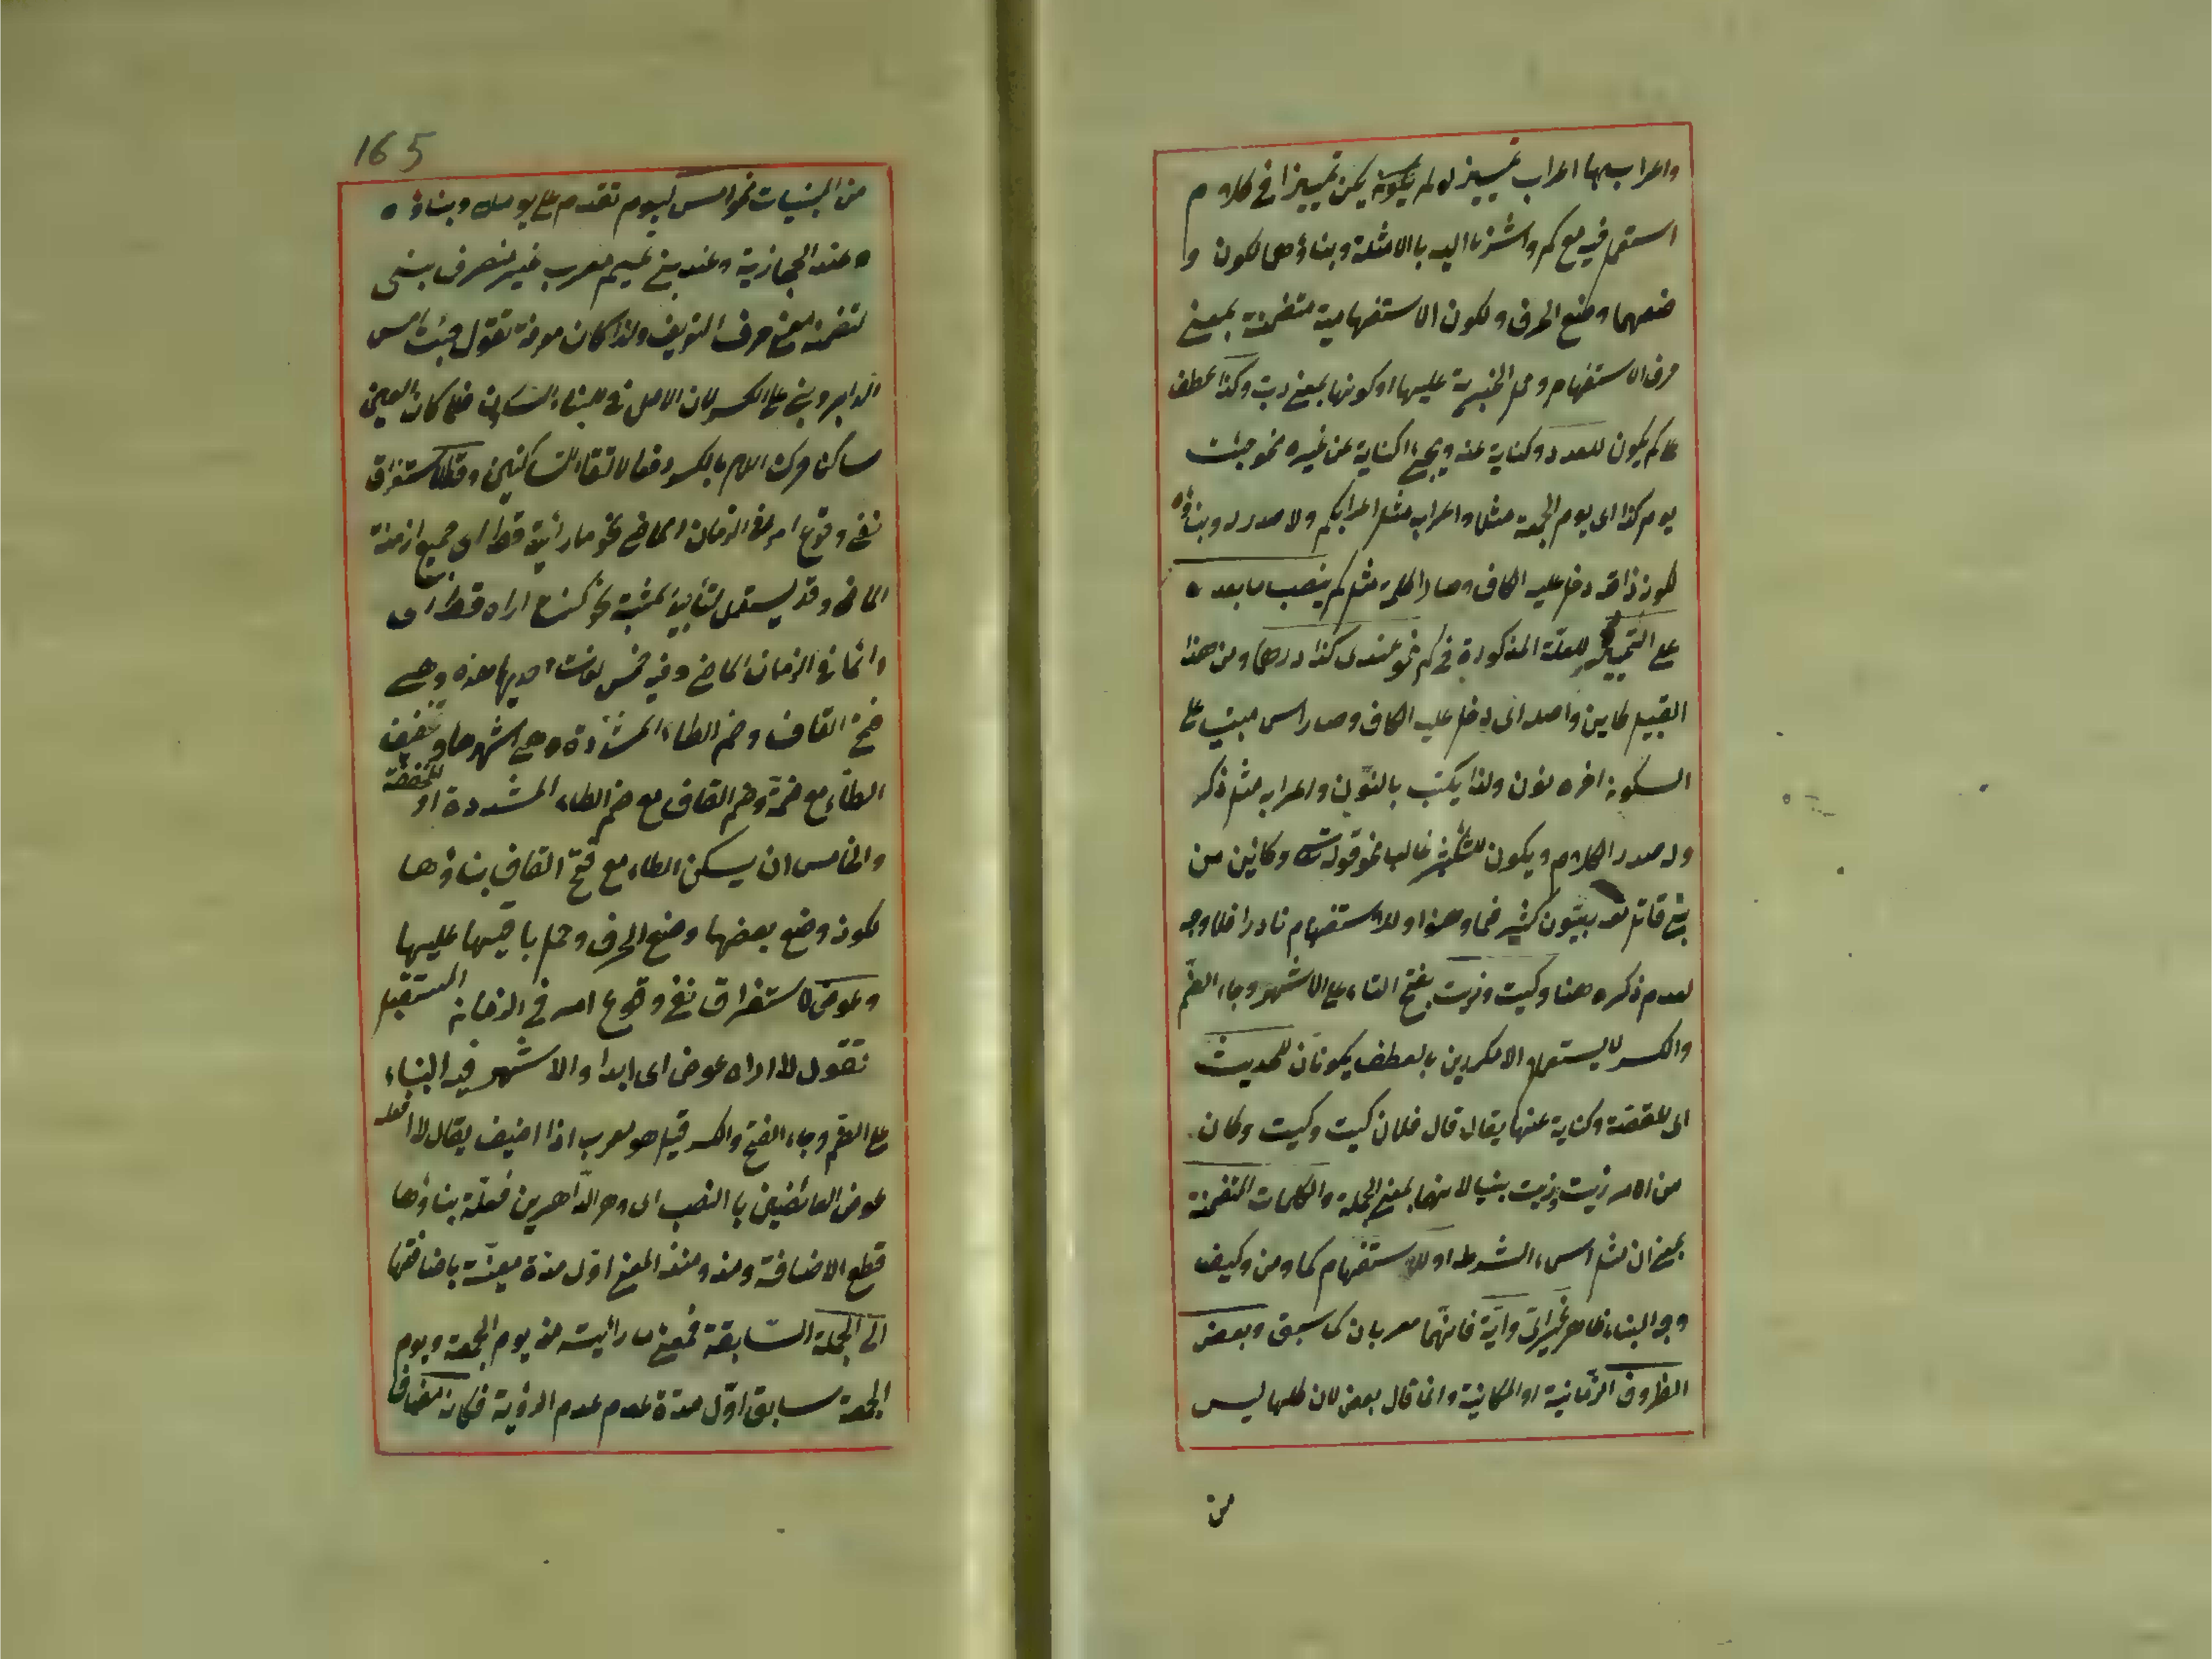 واعرابهما اعراب تمييز لو لم يكونه يكن تمييزا في كلام
استعمل فيه مع كم واشرنا اليه بالامثلة وبناؤهما لكون و
ضعهما وضع الحرف ولكون الاستفهامية متضمنة بمعنى
حرف الاستفهام وحمل الخبرية عليها او كونها بمعنى رب وكذا عطف
على كم يكون للعدد وكناية عنه ويجيء كناية عن غيره نحو جئت
يوم كذا اى يوم الجمعة مثلا واعرابه مثل اعراب كم ولا صدر له وبناؤه
لكون ذا قد دخل عليه الكاف وصار الكلمة مثل كم ينصب ما بعده
على التمييز للعلة المذكورة في كم نحو عندى كذا درهما ومن هذا
القبيل كاين واصله اى دخل عليه الكاف وصار اسم مبنيا على
السكون اخره نون ولذا يكتب بالنون واعرابه مثل ذكر
وله صدر الكلام ويكون للتكثير غالبا نحو قوله تعالى وكائين من
نبي قاتل معه ربيون كثير فما وهنوا وللاستفهام نادرا فلا وجه
لعدم ذكره هنا وكيت وذيت بفتح التاء على الاشهر وجاء الضم
والكسر لا يستعمل الا مكررين بالعطف يكونان للحديث
اى للقصة وكناية عنها يقال قال فلان كيت وكيت وكان
من الامر ذيت وذيت بنيا لانهما بمعنى الجملة والكلمات المتضمنة
بمعنى ان مثل اسماء الشرط او للاستفهام كما ومن وكيف
وجه البناء ظاهر غير اى وأية فانهما معربان كما سبق وبعض
الظروف الزمانية او المكانية وانما قال بعض لان كلها ليس
من
165
من المبنيات نحو امس ليوم تقدم على يومك وبناؤه
ه عند الحجازية وعند بني تميم معرب غير منصرف بنى
لتضمنه معنى حرف التعريف ولذا كان معرفة تقول جئت امس
الدابر وبنى على الكسر لان الاصل في البناء السكون فلما كان العين
ساكنا حركت اللام بالكسر دفعا لالتقاء الساكنين وقط لاستغراق
نفي وقوع امر في الزمان الماضى نحو ما رأيته قط اى جميع ازمنة
الماضى وقد يستعمل لتأبيد المثبت نحو كنت اراه قط اى
دائما في الزمان الماضى وفيه خمس لغات احديها هذه وهى
فتح القاف وضم الطاء المشددة وهى اشهرها وتخفيف
الطاء مع ضمة وضم القاف مع ضم الطاء المشددة او المخففة
والخامس ان يسكن الطاء مع فتح القاف بناؤها
لكون وضع بعضها وضع الحرف وحمل باقيها عليها
وعوض لاستغراق نفي وقوع امر في الزمان المستقبل
تقول لا اراه عوض اى ابدا والاشهر فيه البناء
على الضم وجاء الفتح والكسر قيل هو معرب اذا اضيف يقال لا افعله
عوض العائضين بالنصب اى دهر الداهرين فعلة بناؤها
قطع الاضافة ومذ ومنذ لمعنى اول مدة معينة باضافتها
الى الجملة السابقة فمعنى ما رأيته مذ يوم الجمعة ويوم
الجمعة سابق اول مدة عدم عدم الرؤية فكان مضافا